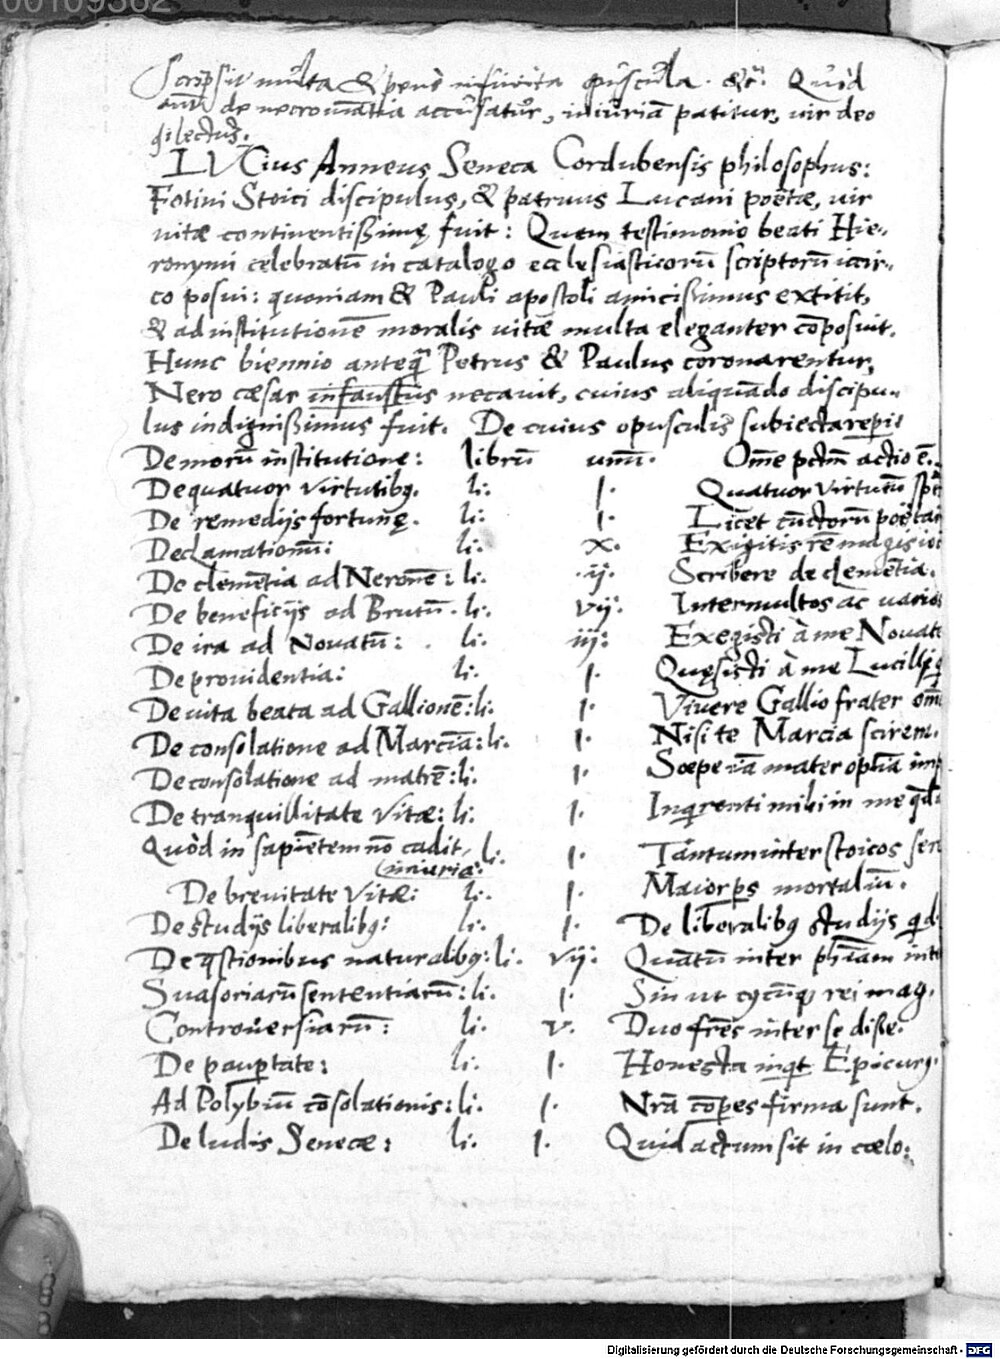 00109362
Scripsit multa & penè infinita opuscula. &c. Quòd
aut de necromantia accusatur, iniuriã patitur, vir deo
dilectus.
LVCius Anneus Seneca Cordubensis philosophus:
Fotini Stoici discipulus, & patruus Lucani poëtæ, vir
vitæ continentißimę fuit: Quem testimonio beati Hie-
ronymi celebratũ in catalogo ecclesiasticorũ scriptorũ
co posui: quoniam & Pauli apostoli amicißimus extitit,
& ad institutionẽ moralis vitæ multa eleganter cõposuit.
Hunc biennio anteq̃ Petrus & Paulus coronarentur,
Nero cæsar infaustus necauit, cuius aliquãdo discipu-
lus indignißimus fuit. De cuius opusculis subiecta
De morũ institutione: librũ unũ. Om̃e pctm̃ actio ẽ.
De quatuor virtutibꝯ. li. j. Quatuor virtutũ
De remedijs fortunę. li. j. Licet cũctorũ poëtar
Declamationũ: li. x. Exigitis rẽ magis
De clemẽtia ad Neronẽ: li. ij. Scribere de clemẽtia.
De beneficijs ad Brutũ. li. vij. Inter multos ac varios
De ira ad Nouatũ: li. iij: Exegisti à me Nouate
De prouidentia: li. j. Quęsisti à me Lucilli
De vita beata ad Gallionẽ: li. j. Viuere Gallio frater om̃
De consolatione ad Marciã: li. j. Nisi te Marcia scirem.
De consolatione ad matrẽ: li. j. Sæpe iã mater optĩa imp
De tranquillitate vitæ: li. j. Inqrenti mihi in me
Quòd in sapiẽtem nõ cadit, li. j. Tãtum inter stoicos
iniuria:
De breuitate vitæ: li. j. Maior ps mortaliũ.
De studijs liberalibꝯ: li. j. De liberalibꝯ studijs qd
De q̃stionibus naturalibꝯ: li. vij. Quãtũ inter phiam int
Suasoriarũ sententiarũ: li. j. Sin ut rei mag.
Controuersiarũ: li. v. Duo frẽs inter se diße.
De paupertate: li. j. Honesta inqt Epicurꝯ.
Ad Polybiũ cõsolationis: li. j. Nrã corpes firma sunt.
De ludis Senecæ: li. j. Quid actum sit in cœlo:
Digitalisierung gefördert durch die Deutsche Forschungsgemeinschaft - DFG